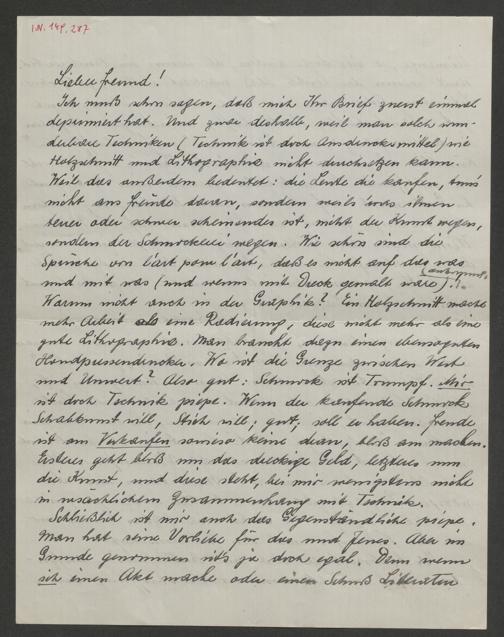 I.N. 149.287
Lieber Freund!
Ich muß schon sagen, daß mich Ihr Brief zuerst einmal
deprimiert hat. Und zwar deshalb, weil man solch wun-
derbare Techniken (Technik ist doch Ausdrucksmittel) wie
Holzschnitt und Lithographie nicht durchsetzen kann.
Weil das außerdem bedeutet: die Leute die kaufen, tun's
nicht aus Freude daran, sondern weil's was ihnen
teuer oder schwer scheinendes ist, nicht der Kunst wegen,
sondern der Schmockerei wegen. Wie schön sind die
Sprüche von l'art pour l'art, daß es nicht auf das was
und mit was (und wenns mit Dreck gemalt wäre)!
Warum nicht auch in der Graphik? Ein Holzschnitt macht
mehr Arbeit als eine Radierung, diese nicht mehr als eine
gute Lithographie. Man braucht dazu einen ebensoguten
Handpressendrucker. Wo ist die Grenze zwischen Wert
und Unwert? Also gut: Schmock ist Trumpf. Mir
ist doch Technik piepe. Wenn der kaufende Schmock
Schabkunst will, Stich will; gut, soll er haben. Freude
ist am Verkaufen sowieso keine dran, bloß am machen.
Ersteres geht bloß um das dreckige Geld, letzteres um
die Kunst, und diese steht, bei mir wenigstens nicht
in ursächlichem Zusammenhang mit Technik.
Schließlich ist mir auch das Gegenständliche piepe.
Man hat seine Vorliebe für das und jenes. Aber im
Grunde genommen ist's ja doch egal. Denn wenn
ich einen Akt mache oder einen Schuß